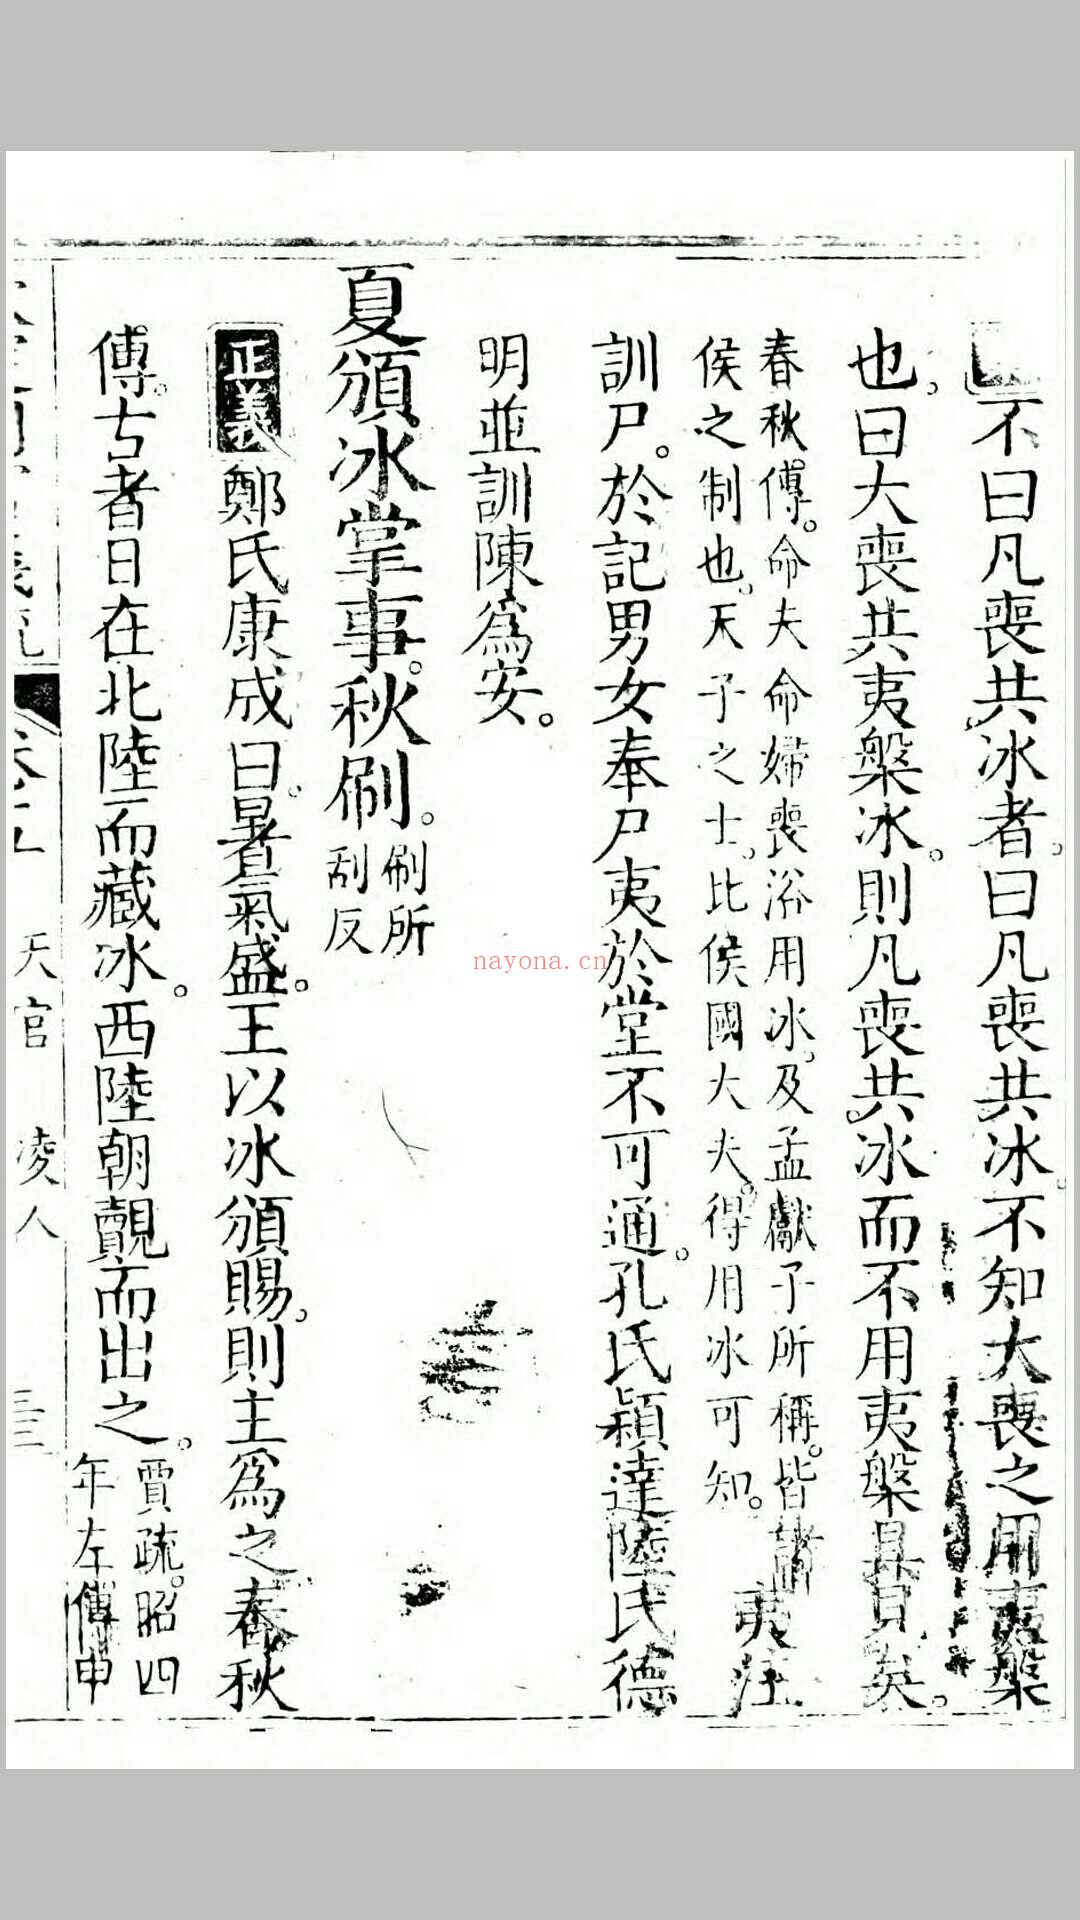 不曰凡喪共冰者。曰凡喪共冰。不知大喪之用夷槃
也。曰大喪共夷槃冰。則凡喪共冰而不用夷槃具見矣。
春秋傳。命夫命婦喪浴用冰。及孟獻子所稱。皆諸
侯之制也。天子之士。比侯國大夫。得用冰可知。
夷注
訓尸。於記男女奉尸夷於堂不可通。孔氏穎達陸氏德
明並訓陳為安。
夏頒冰掌事。秋刷。
刷所
刮反
正義
鄭氏康成曰。暑氣盛。王以冰頒賜。則主為之。春秋
傳。古者日在北陸而藏冰。西陸朝覿而出之。
賈疏。昭四
年左傳申
天官 凌人
nayona.cn